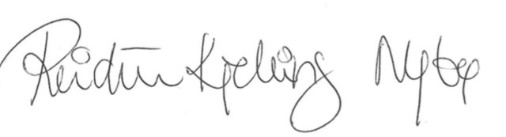 Reidun Kjelling Nybø